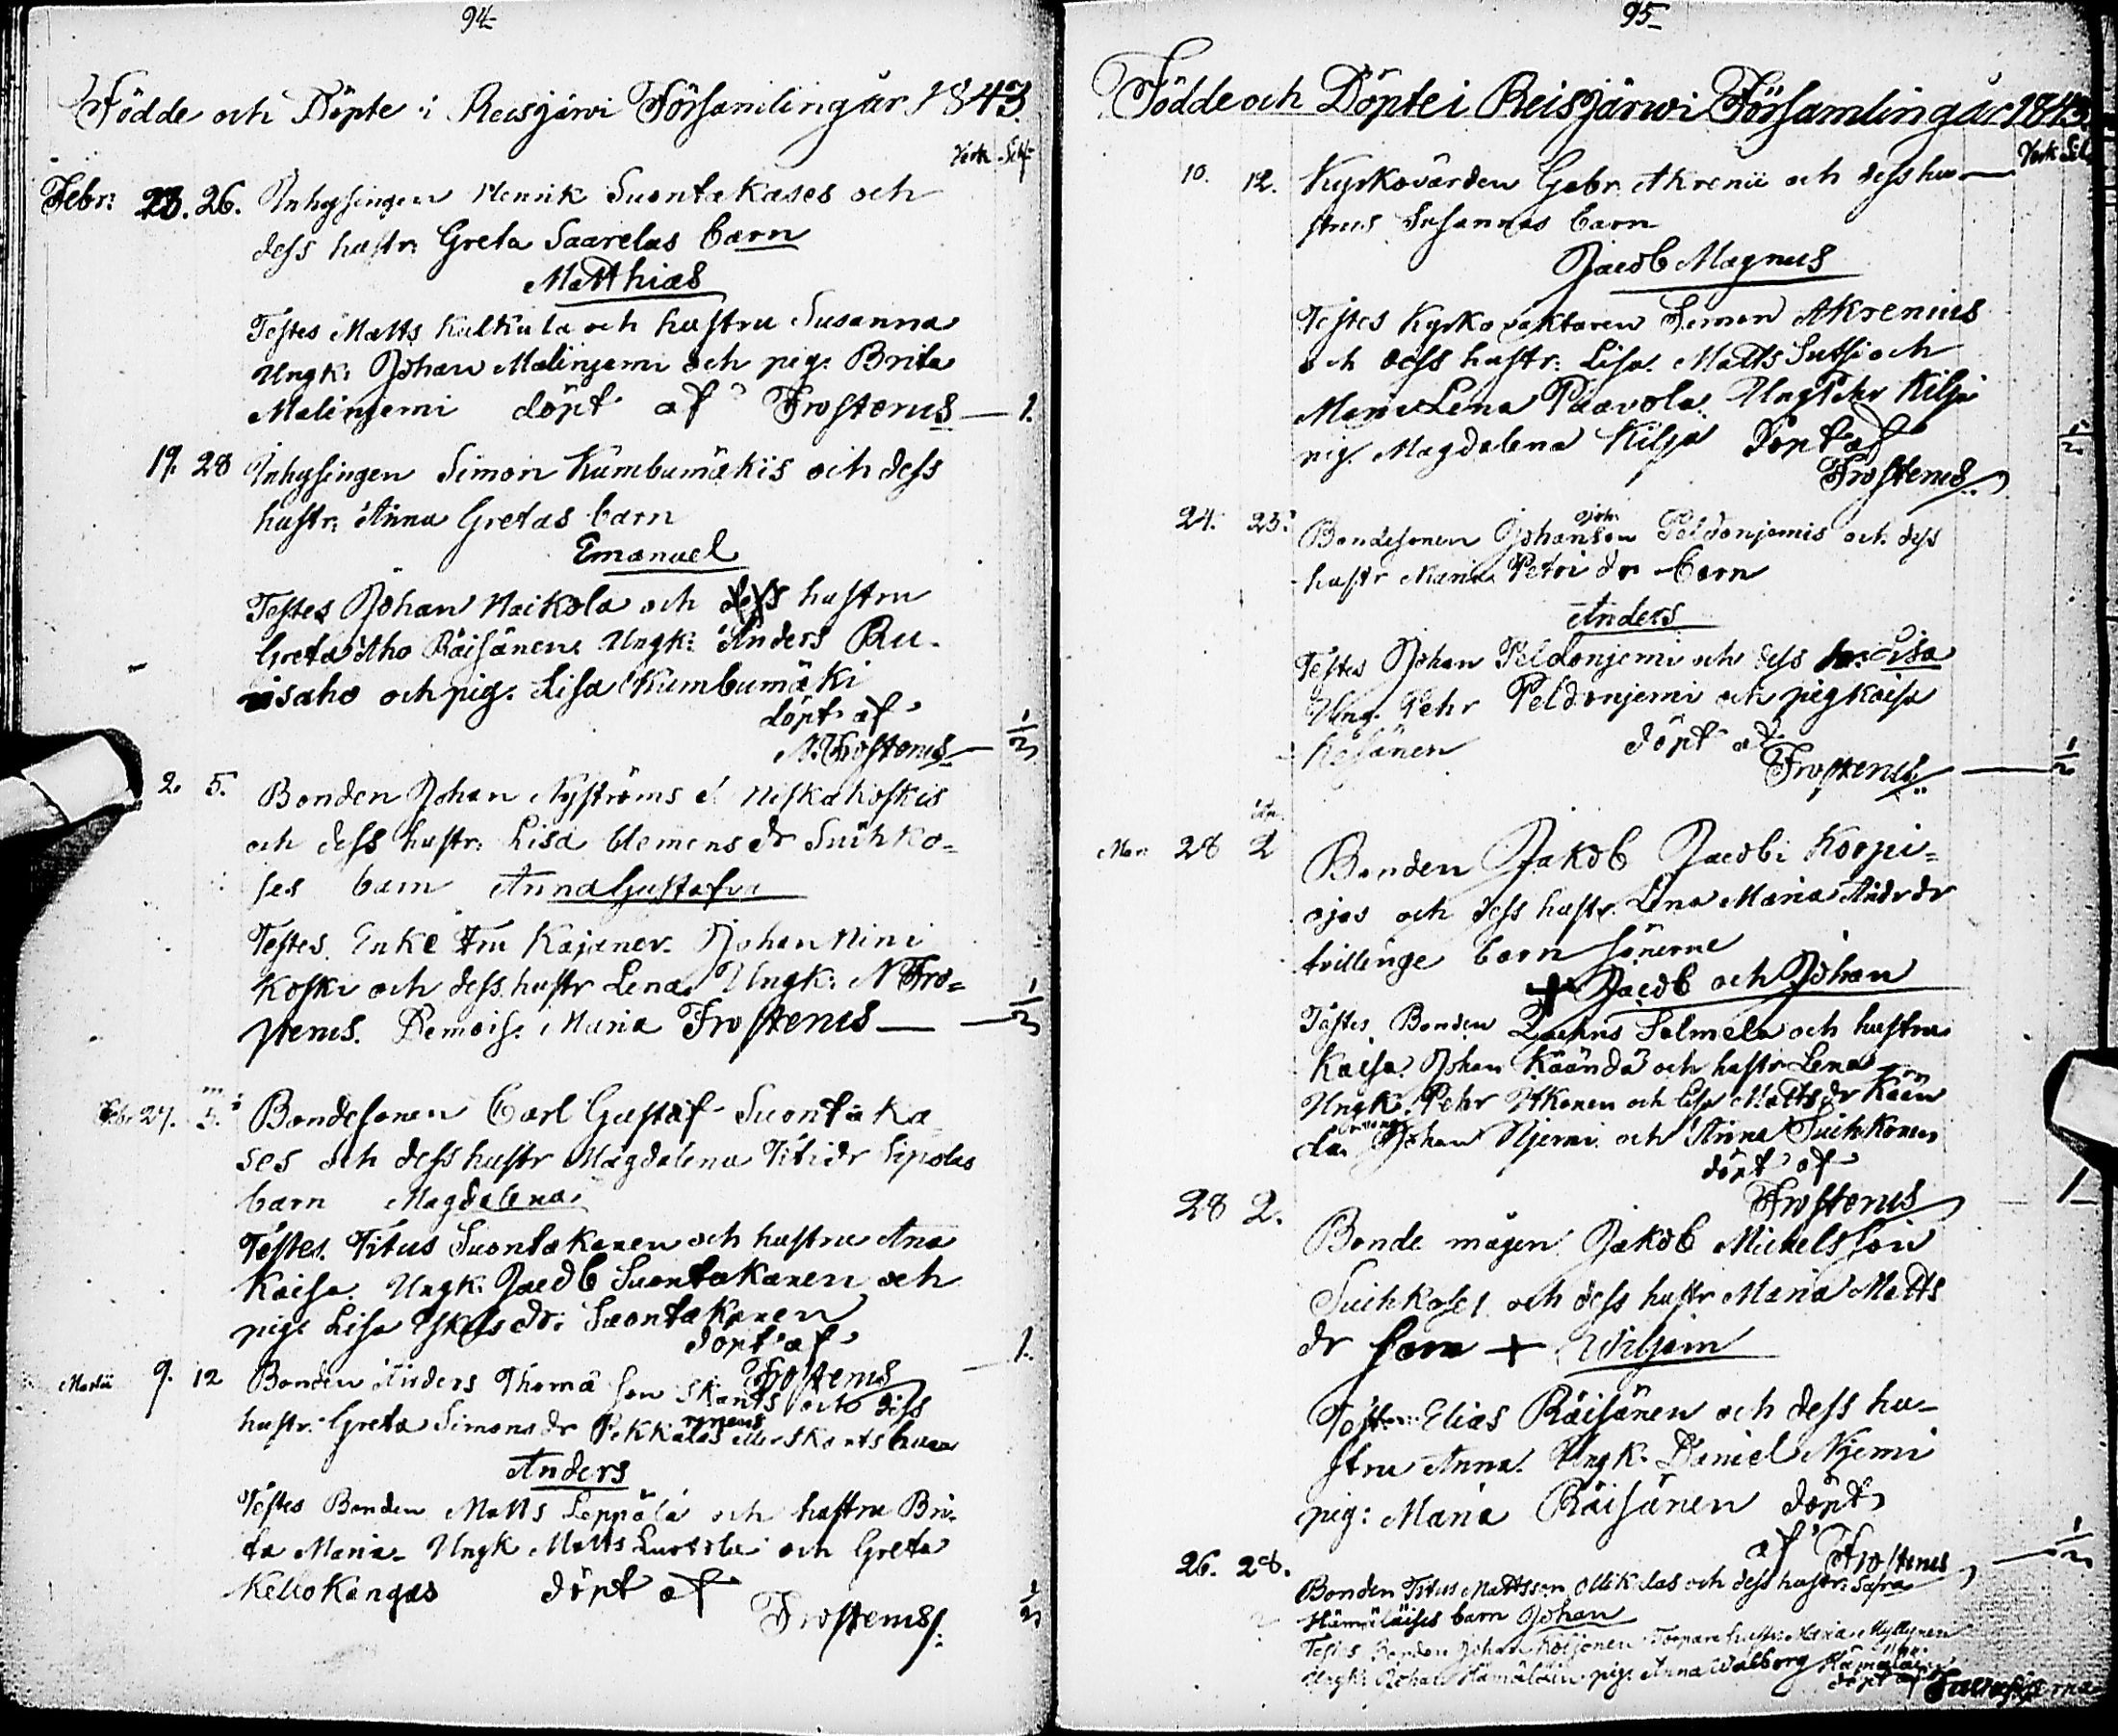 94
Födde och Döpte i Reisjärvi Församling år 1843.
Febr: 23. 26. Inhysingen Henrik Suontakases och
dess hustr: Greta Saarelas barn
Matthias
Testes Matts Kulkula och hustru Susanna
Ungk: Johan Malinjemi och pig. Brita
Malinjemi döpt af Frosterus — 1.
19. 28 Inhysingen Simon Kumbumäkis och dess
hustr: Anna Gretas barn
Emanuel
Testes Johan Naikola och dess hustru
Greta Aho Räisänen Ungk: Anders Ru-
isaho och pig. Lisa Kumbumäki
döpt af
N. Frosterus — 1/2
2. 5. Bonden Johan Nyströms el Niskakoskis
och dess hustr: Lisa Clemens dr Suihko=
ses barn Anna Gustafva
Testes Enke Fru Kajaner. Johan Nini
koski och dess hustr Lena Ungk: N Fro=
sterus. Demois. Maria Frosterus — 1/2
Febr 27. 5. Bondesonen Carl Gustaf Suontaka
ses och dess hustr Magdalena Titi dr Sipolas
barn Magdalena
Testes. Titus Suontakanen och hustru Ana
Kaisa. Ungk: Jacob Suontakanen och
pig: Lisa dr: Suontakanen
döpt af
Frosterus — 1.
Martii 9. 12 Bonden Anders Thomä son Skants och dess
hustr: Greta Simons dr Pekkalas eller Skants barn
Anders
Testes Bonden Matts Leppälä och hustru Bri-
ta Maria. Ungk Matts och Greta
Kellokangas döpt af
Frosterus. 1/2
95
Födde och Döpte i Reisjärvi Församling år 1843.
10. 12. Kyrkovärden Gabr. Akrenii och dess hu-
strus Susannas barn
Jacob Magnus
Testes Kyrkovaktaren Simon Akrenius
och dess hustr: Lisa. Matts Sutsi och
Maria Lena Paavola. Ung Pehr Kilja
pig. Magdalena Kilja Döpt af
Frosterus. 1/2
24. 25. Bondesonen Johan Johansson Peldonjemis och dess
hustr Maria Petri dr barn
Anders
Testes Johan Peldonjemi och dess h: Lisa
Ung. Pehr Peldonjemi och pig Kaisa
Kosänen döpt af
Frosterus. — 1/2
Mar: 28 2 Bonden Jakob Jacobi Korpi=
ojas och dess hustr. Lena Maria Andr dr
tvillinge barn sönerne
+ Jacob och Johan
Testes Bonden Zachris Salmela och hustru
Kaisa. Johan Käändä och hustr Lena
Ungk. Pehr Ukonen och Lisa Matts dr Kään
da. Johan Njemi och Anna Suihkonen
döpt af
Frosterus 1
28 2. Bonde mågen Jakob Michelsson
Suihkoses och dess hustr Maria Matts
dr barn + Wilhjam
Test: Elias Räisänen och dess hu-
stru Anna. Ungk. Daniel Njemi
pig: Maria Räisänen döpt
af Frosterus 1/2
26. 28. Bonden Titus Mattsson Ollikalas och dess hustr: Safra
Hämäläises barn Johan
Testes Bonden Johan Torpare hustr: Maria Myllynen
Ungk: Johan Hämäläin pig: Anna Walborg Hämäläin
döpt af